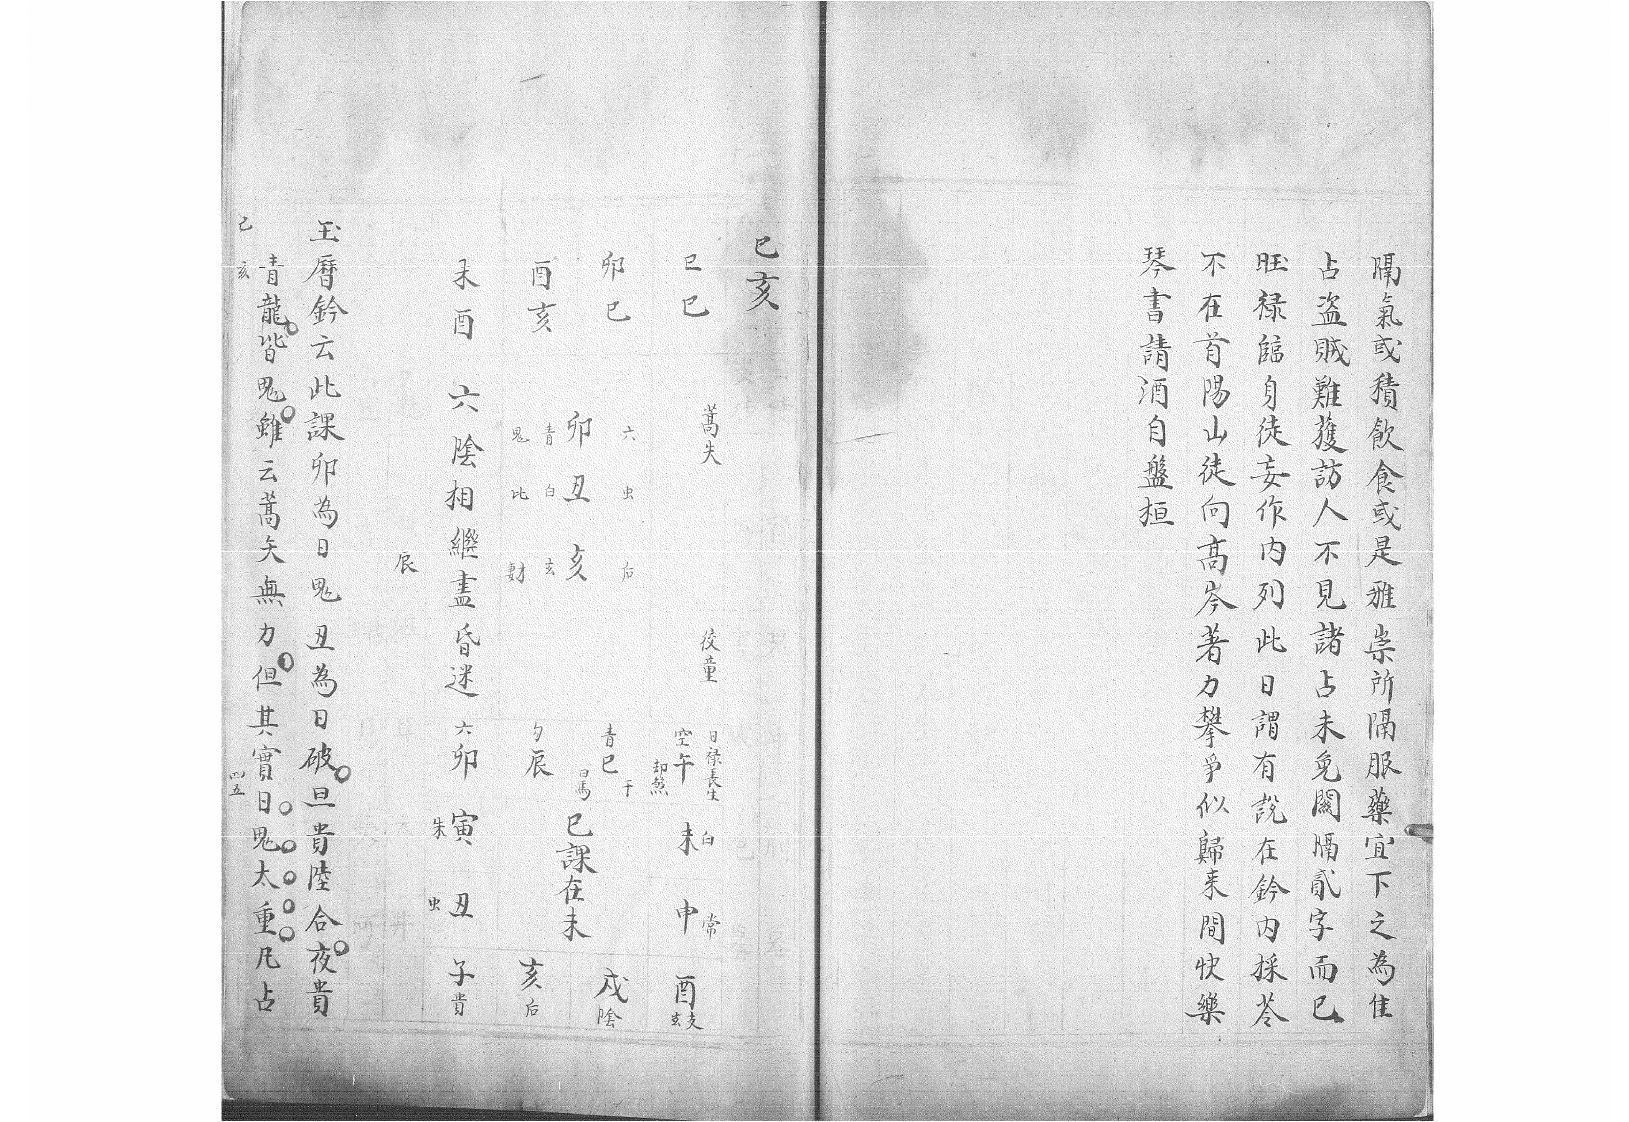 隔氣或積飲食或是雅祟所隔服藥宜下之為佳
占盜賊難獲訪人不見諸占未免閣隔貳字而已
旺祿臨身徒妄作內列此日謂有說在鈐內採苓
不在首陽山徒向高岑著力攀爭似歸来間快樂
琴書請酒自盤桓
己亥
巳巳
蒿矢
佼童
日祿長生
空午
却煞
未白
申常
酉
玄支
卯巳
六
虫
后
卯丑亥
青
白
玄
鬼
比
財
青巳
干
日馬
巳課在未
戌
陰
酉亥
夕
辰
亥
后
未酉
六陰相繼盡昏迷
六卯
寅
朱
丑
虫
子
貴
辰
玉曆鈐云此課卯為日鬼丑為日破旦貴陸合夜貴
青龍皆鬼雖云蒿矢無力但其實日鬼太重凡占
己亥
四五